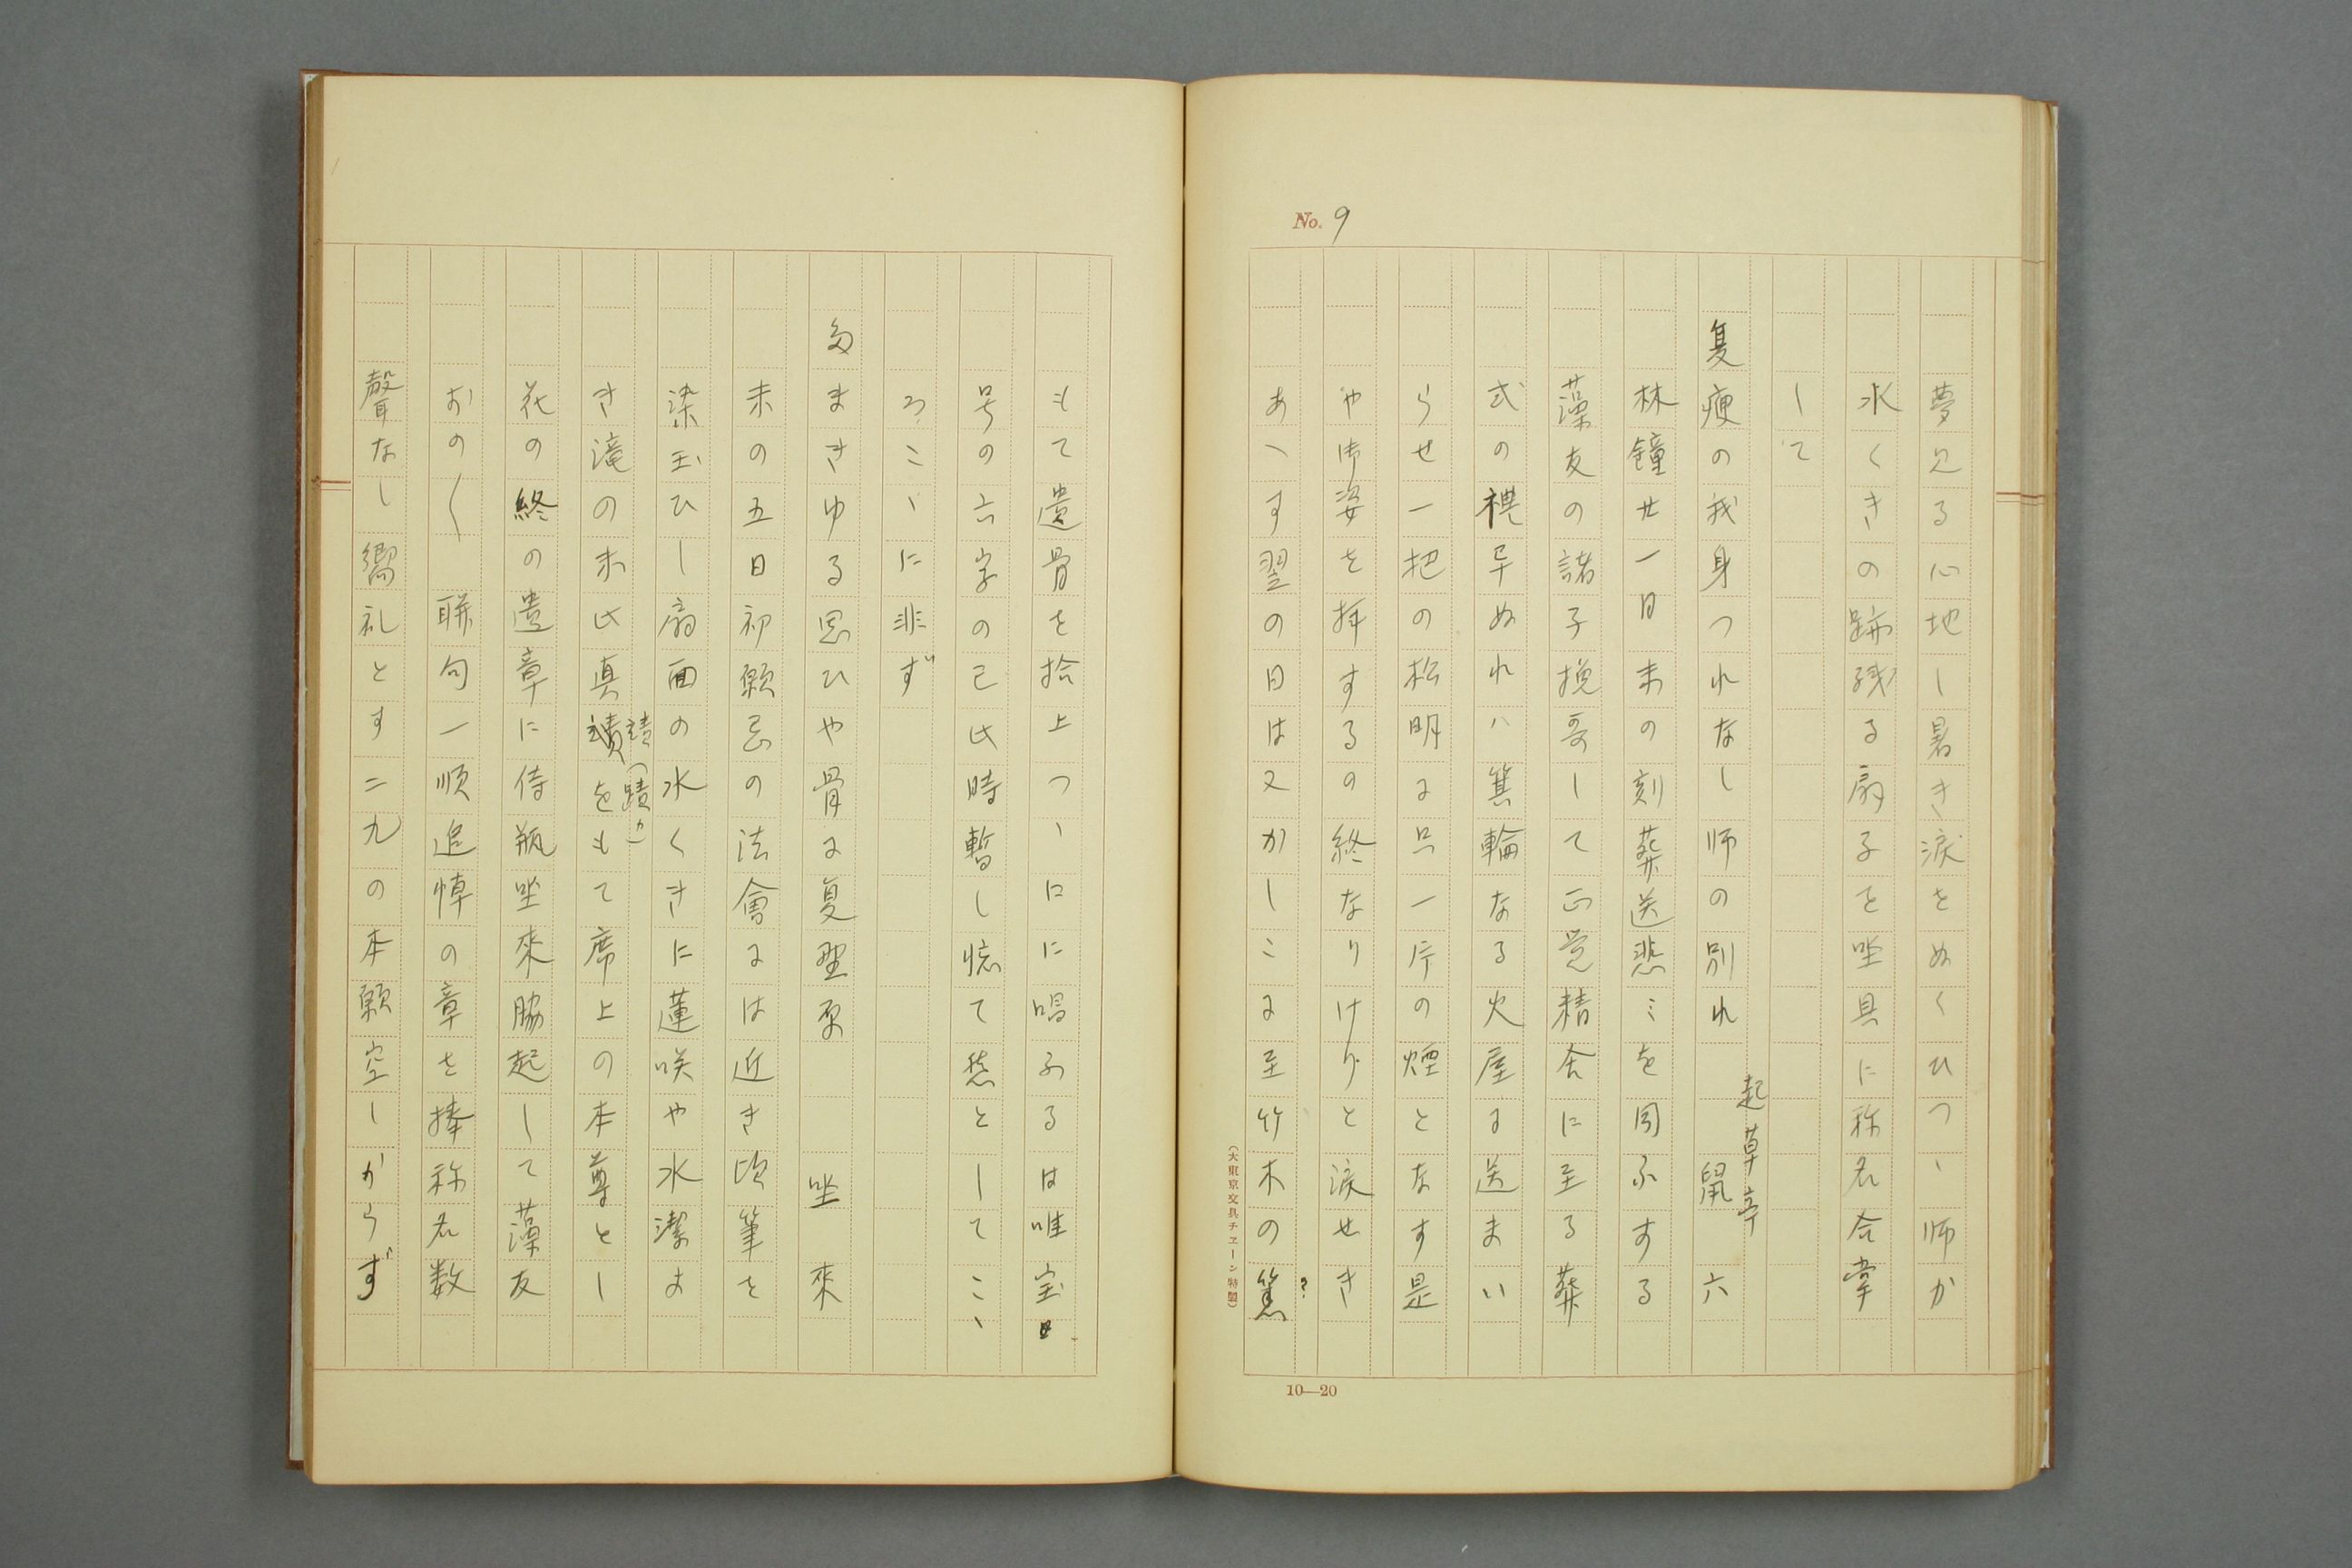 No. 9
夢見る心地し暑き涙をぬくひつゝ師か
水くきの跡残る扇子を坐具に称名合掌
して
起草亭
夏痩の我身つれなし師の別れ　鼠六
林鐘廿一日未の刻葬送悲ミを同ふする
藻友の諸子挽哥して正覚精舍に至る葬
式の禮畢ぬれハ篝輪なる火屋に送まい
らせ一把の松明に只一片の煙となす是
や御姿を拝するの終なりけりと涙せき
あへす翌の日は又かしこに至竹木の
?
(大東京文具チェーン特製)
10—20
もて遺骨を拾上つゝ口に唱ふるは唯宝
号の六字の已此時暫し憶て愁としてこゝ
ろこゝに非ず
たまきゆる思ひや骨に夏野原　坐來
未の五日初願忌の法會には近き頃筆を
染玉ひし扇面の水くきに蓮咲や水潔よ
き滝の末此真蹟をもて席上の本尊とし
(蹟カ)
花の終の遺章に侍瓶坐來脇起して藻友
おの〱　聯句一順追悼の章を捧称名数
聲なし嚮礼とす二九の本願空しからず